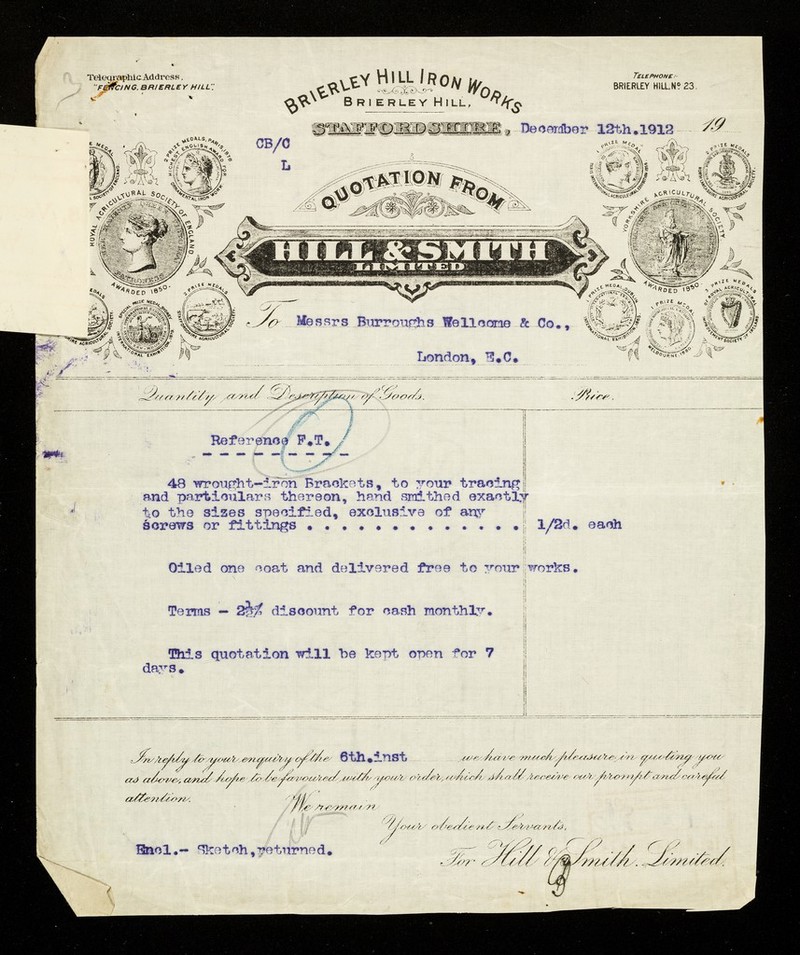 Telegraphic Address.
"FENCING. BRIERLEY HILL".
BRIERLEY HILL IRON WORKS
BRIERLEY HILL,
TELEPHONE:-
BRIERLEY HILL. Nº 23.
STAFFORDSHIRE, December 12th.1912 19
CB/C
L
QUOTATION FROM
HILL & SMITH
LIMITED
ROYAL AGRICULTURAL SOCIETY OF ENGLAND
AWARDED 1850.
YORKSHIRE AGRICULTURAL SOCIETY
AWARDED 1850.
To Messrs Burroughs Wellcome & Co.,
London, E.C.
Quantity and Description of Goods.
Price.
Reference F.T.
48 wrought-iron Brackets, to your tracing
and particulars thereon, hand smithed exactly
to the sizes specified, exclusive of any
screws or fittings . . . . . . . . . . . . . . 1/2d. each
Oiled one coat and delivered free to your works.
Terms - 2½% discount for cash monthly.
This quotation will be kept open for 7
days.
In reply to your enquiry of the 6th.inst we have much pleasure in quoting you
as above, and hope to be favoured with your order, which shall receive our prompt and careful
attention.
We remain
Your obedient Servants,
Encl.- Sketch, returned.
For Hill & Smith. Limited.